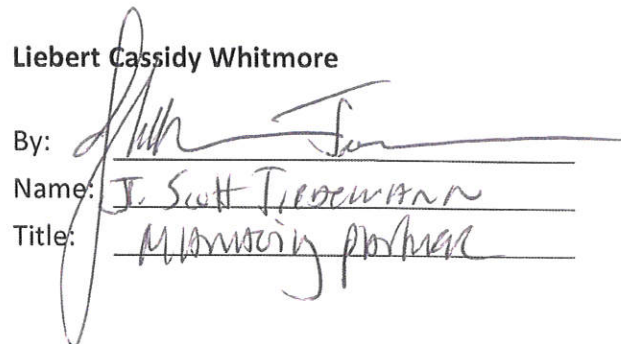 Liebert Cassidy Whitmore
By:
Name: J. Scott Tiedemann
Title: Managing partner